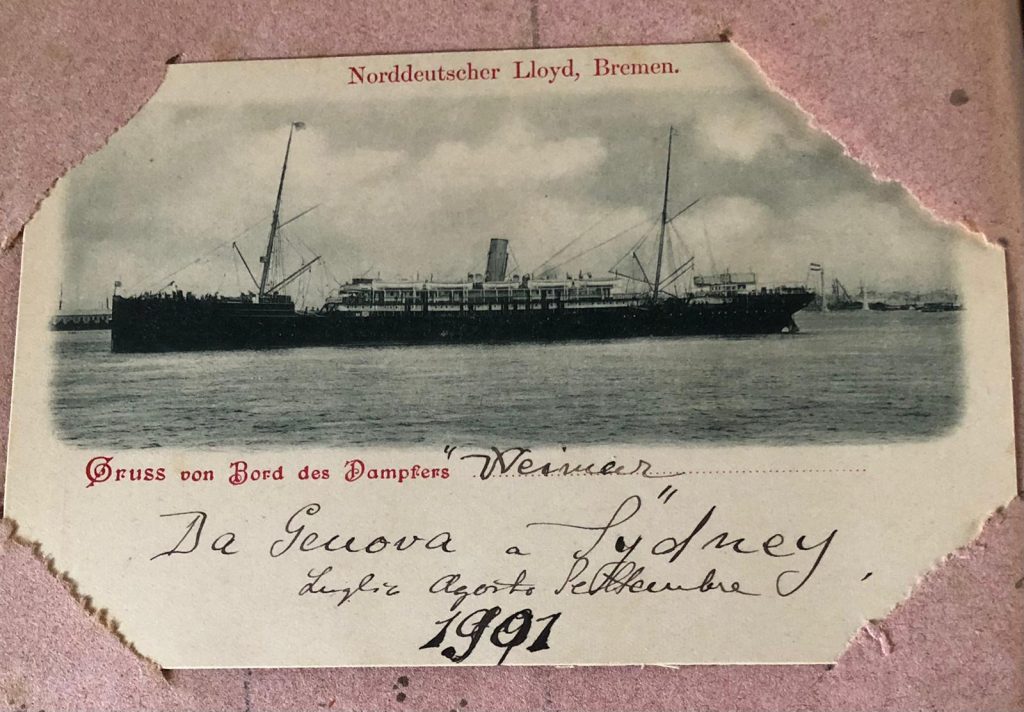 Norddeutscher Lloyd, Bremen.
Gruss von Bord des Dampfers "Weimar"
Da Genova a Sydney,
Luglio Agosto Settembre
1901